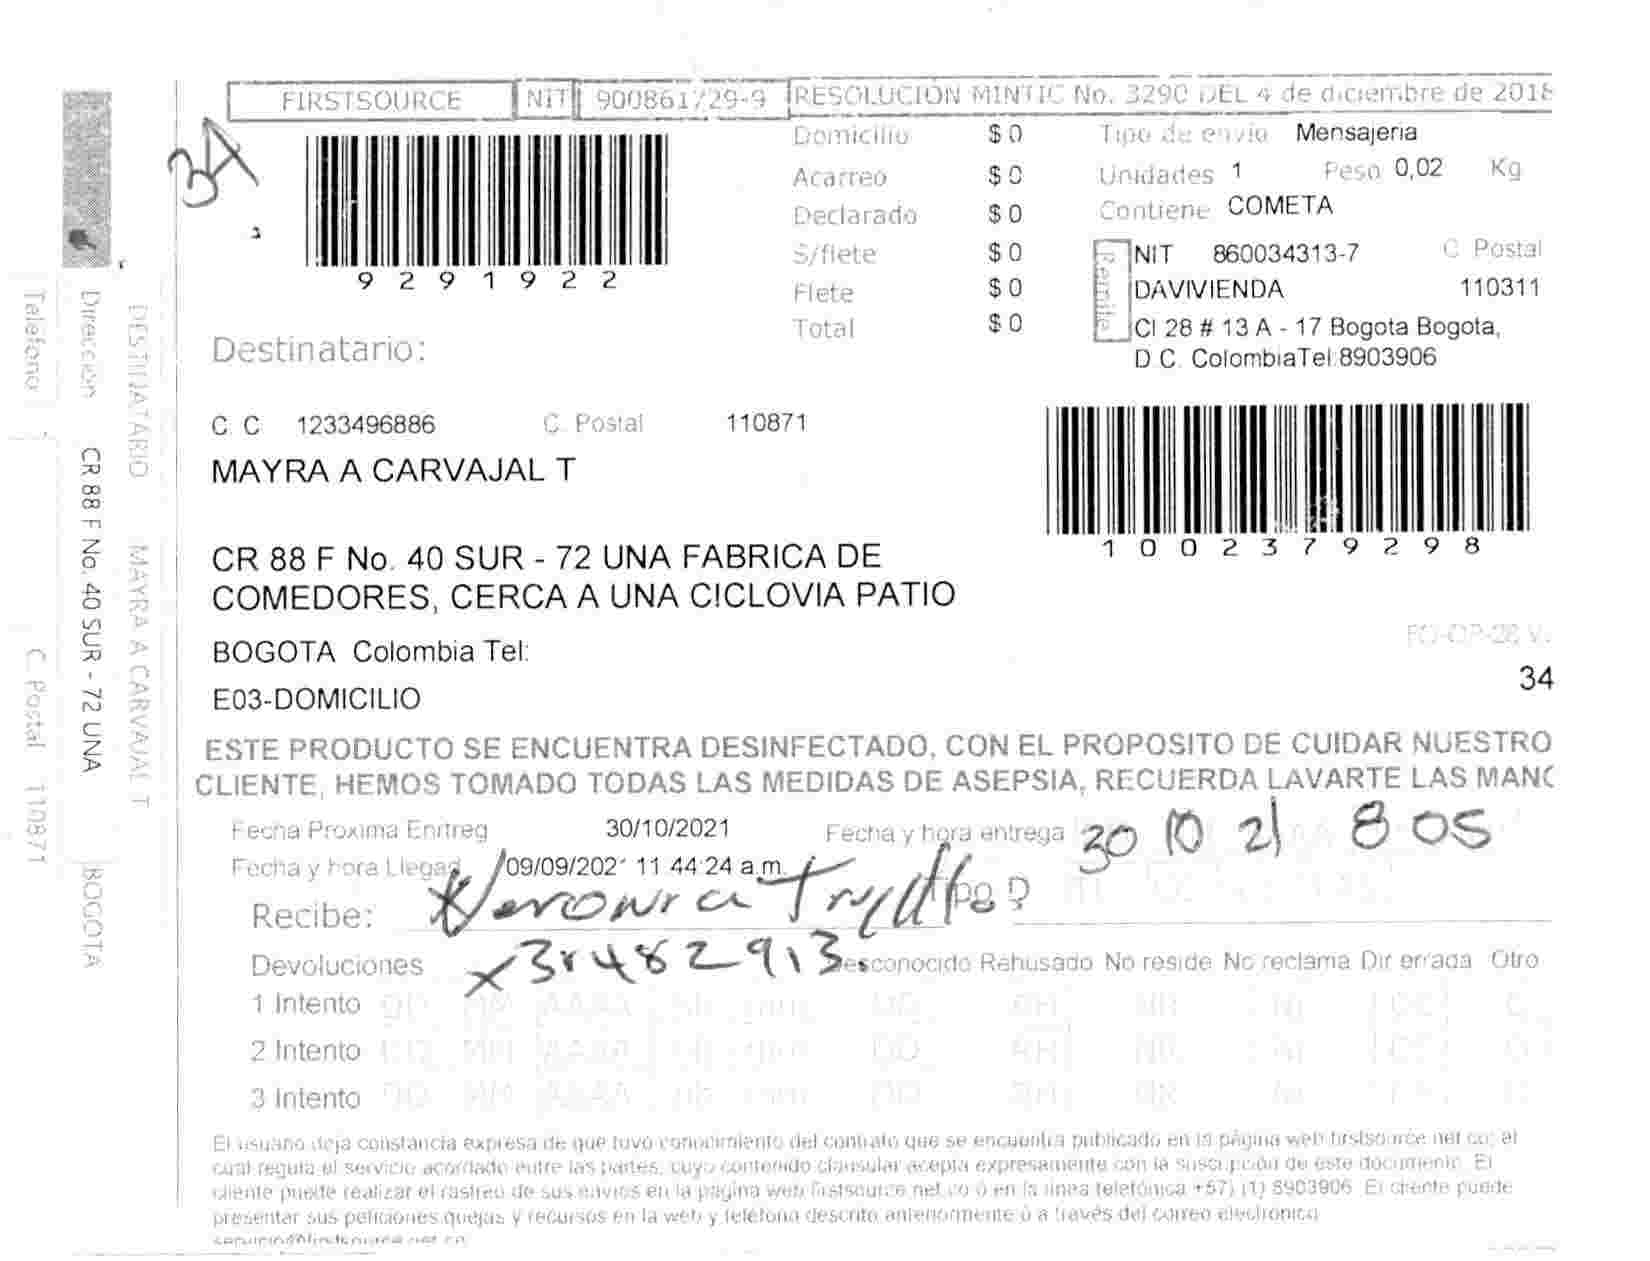 FIRSTSOURCE NIT 900861729-9 RESOLUCION MINTIC No. 3290 DEL 4 de diciembre de 2018
34
9291922
Domicilio $ 0
Acarreo $ 0
Declarado $ 0
S/flete $ 0
Flete $ 0
Total $ 0
Tipo de envio Mensajeria
Unidades 1 Peso 0,02 Kg
Contiene COMETA
Remite
NIT 860034313-7 C Postal
DAVIVIENDA 110311
Cl 28 # 13 A - 17 Bogota Bogota,
D.C. ColombiaTel:8903906
Destinatario:
C. C 1233496886 C. Postal 110871
MAYRA A CARVAJAL T
1002379298
CR 88 F No. 40 SUR - 72 UNA FABRICA DE
COMEDORES, CERCA A UNA CICLOVIA PATIO
BOGOTA Colombia Tel:
E03-DOMICILIO
FO-OP-28 V.
34
ESTE PRODUCTO SE ENCUENTRA DESINFECTADO, CON EL PROPOSITO DE CUIDAR NUESTRO
CLIENTE, HEMOS TOMADO TODAS LAS MEDIDAS DE ASEPSIA, RECUERDA LAVARTE LAS MANO
Fecha Proxima Enrtreg 30/10/2021 Fecha y hora entrega 30 10 21 8 05
Fecha y hora Llegad 09/09/2021 11:44:24 a.m.
Recibe: Veronica
Devoluciones Desconocido Rehusado No reside No reclama Dir errada Otro
1 Intento DD MM AAAA
2 Intento DD MM AAAA
3 Intento DD MM AAAA
El usuario deja constancia expresa de que tuvo conocimiento del contrato que se encuentra publicado en la página web firstsource.net.co; el
cual regula el servicio acordado entre las partes, cuyo contenido clausular acepta expresamente con la suscripción de este documento. El
cliente puede realizar el rastreo de sus envios en la pagina web firstsource.net.co ó en la linea telefónica +57) (1) 8903906. El cliente puede
presentar sus peticiones quejas y recursos en la web y teléfono descrito anteriormente ó a través del correo electronico
servicio@firstsource.net.co
DESTINATARIO MAYRA A CARVAJAL T
Dirección CR 88 F No. 40 SUR - 72 UNA BOGOTA
Telefono C. Postal 110871